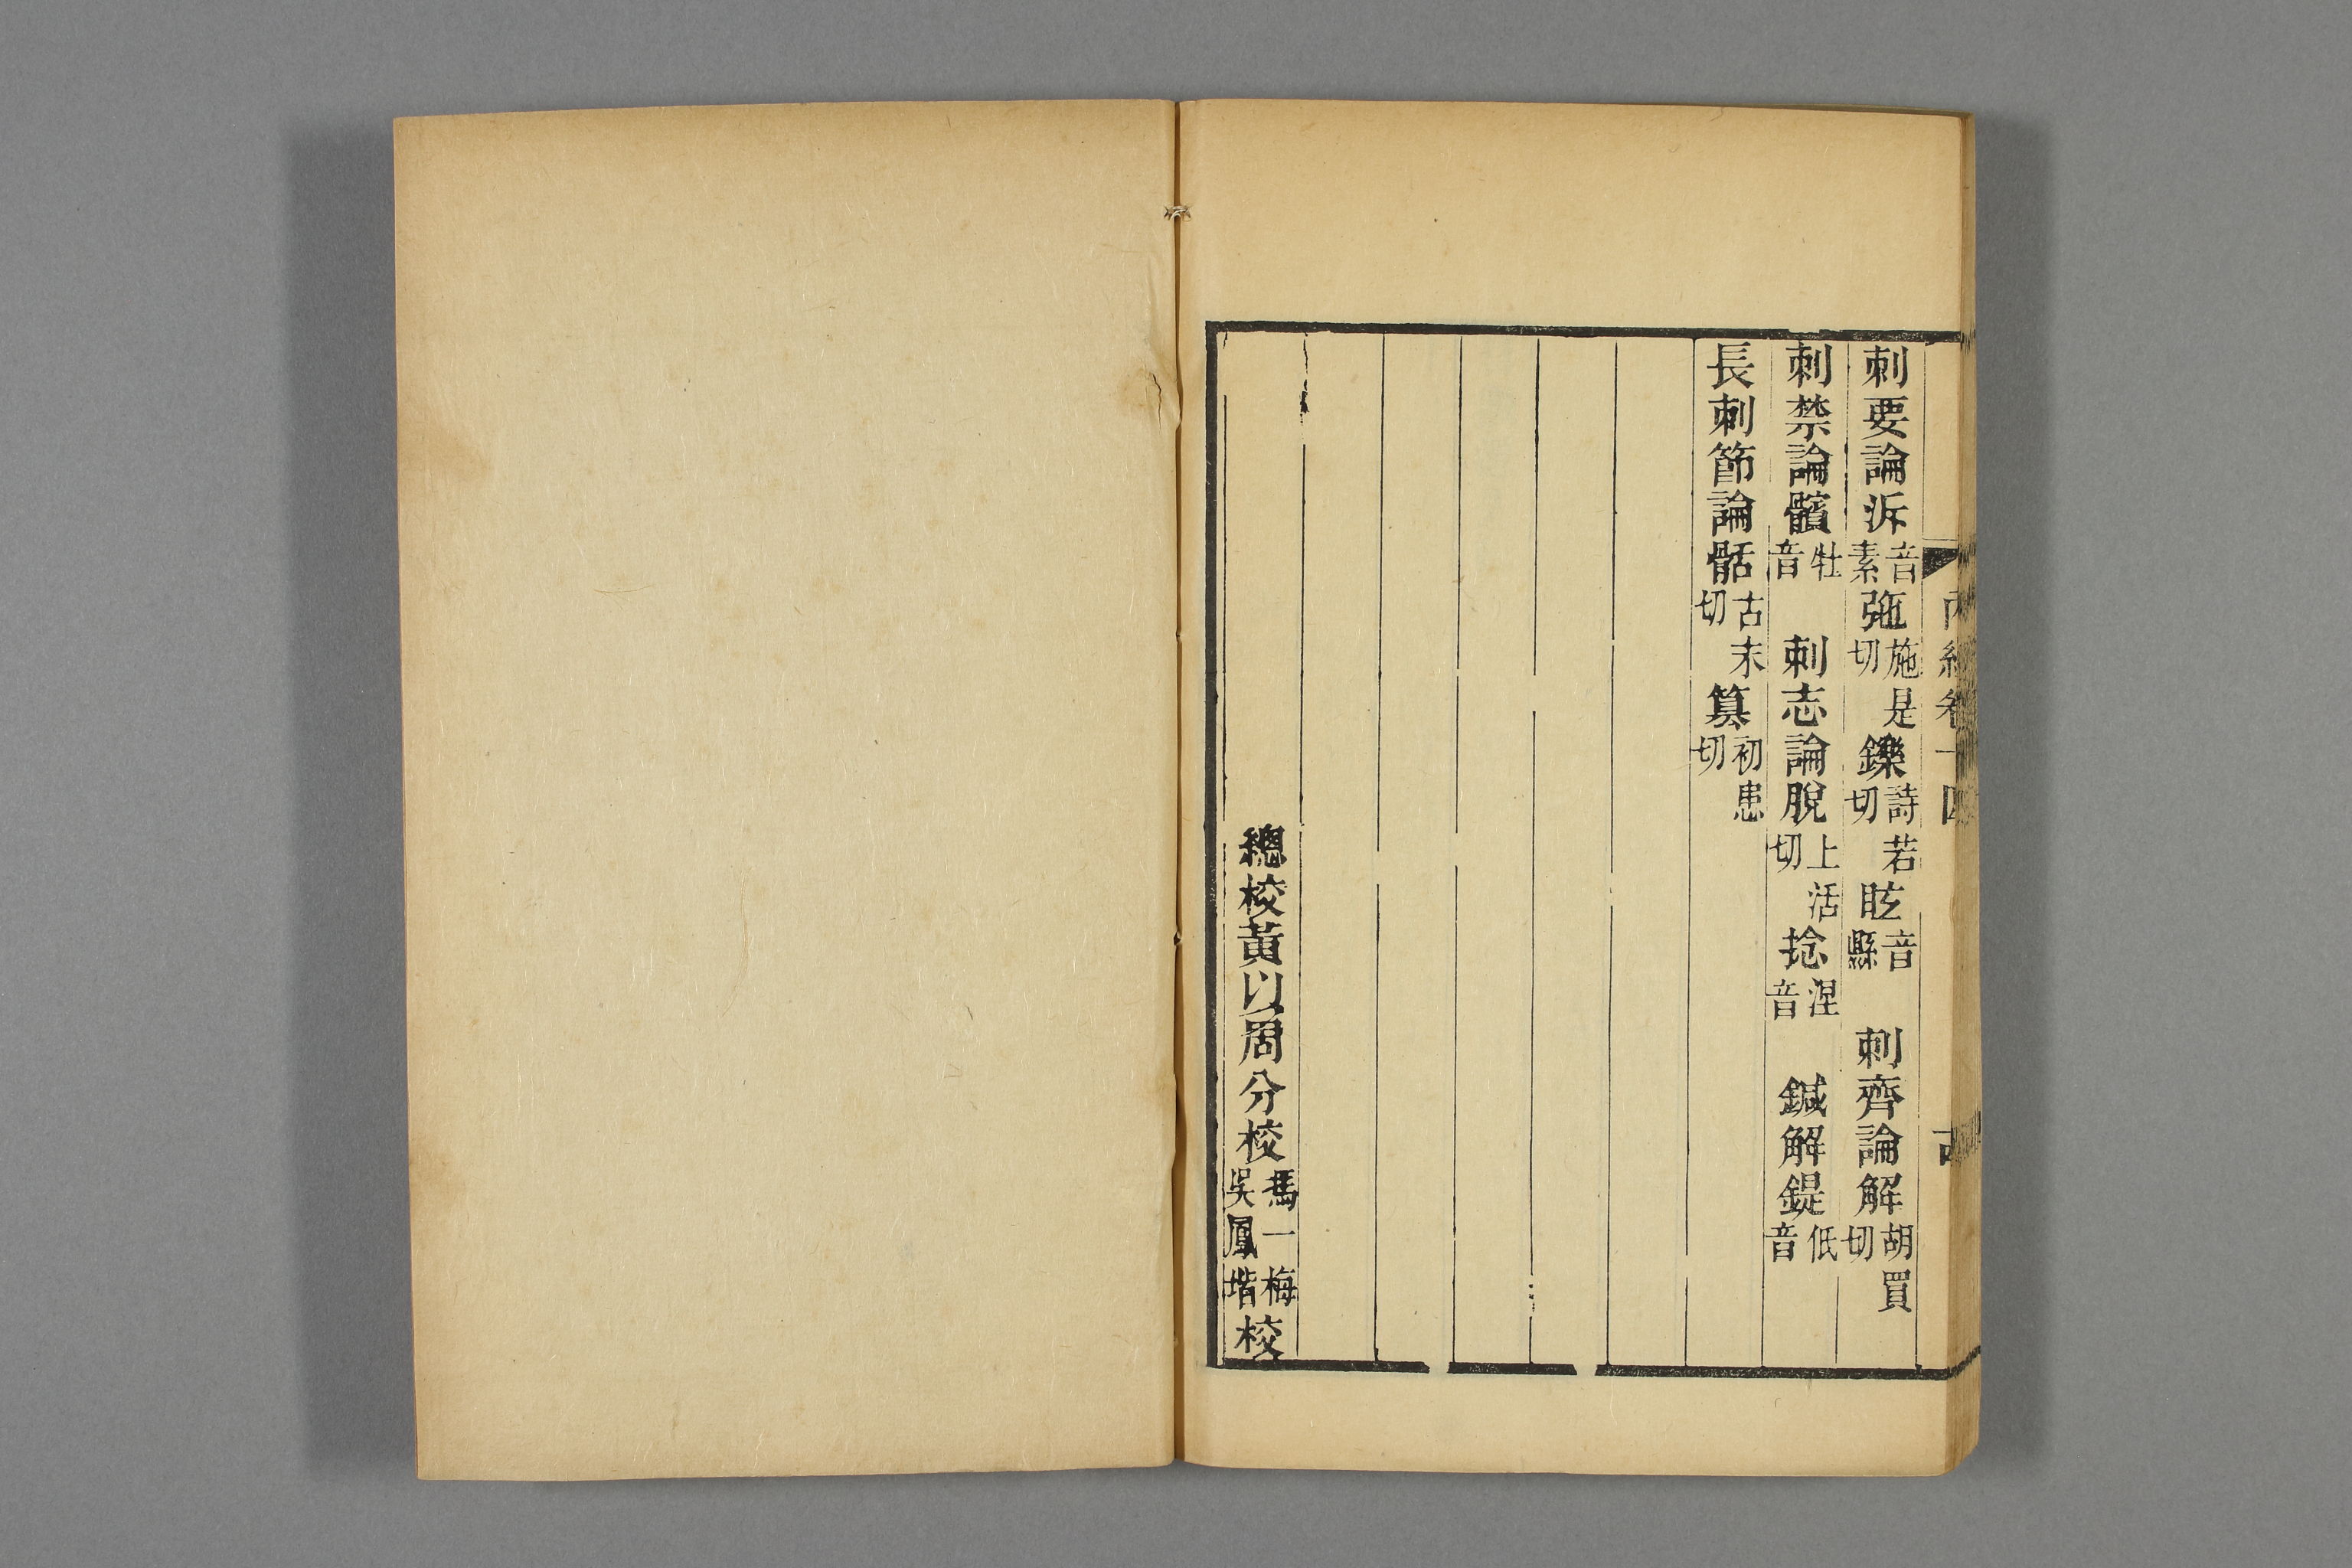 刺要論泝音素弛施是切鑠詩若切眩音縣　刺齊論解胡買切
刺禁論髕牡音　刺志論脫上活切捻涅音　鍼解鍉低音
長刺節論骺古末切篡初患切
總校黃以周分校馮一梅吳鳳堦校